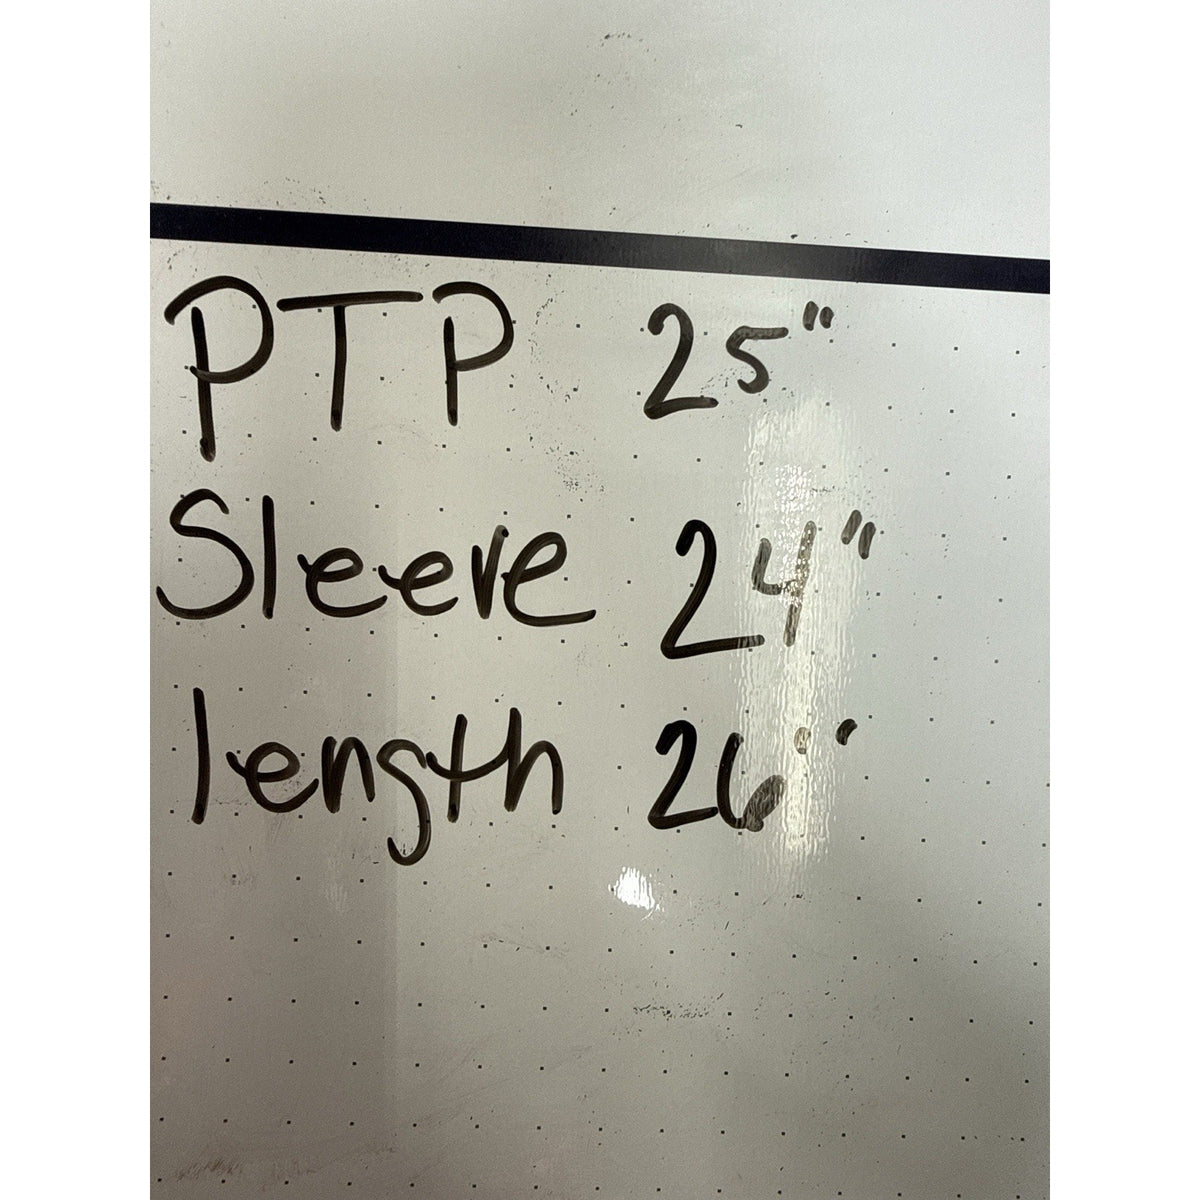 PTP 25"
Sleeve 24"
length 26"